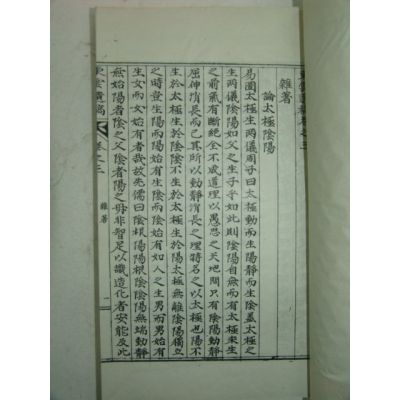 雜著
論太極陰陽
易固太極生兩儀周子曰太極動而生陽靜而生陰盖太極之
生兩儀陰陽如父之生子乎如此則陰陽自無而有太極未生
之前氣有斷絕全不成道理以愚思之天地間只有陰陽動靜
屈伸消長而已其所以動靜消長之理特名之以太極也陽不
生於太極生於陰陰不生於太極生於陽太極無離陰陽獨立
之時豈生陽而始有生陰而陰始有如人之生男而男始有
生女而女始有者哉故先儒曰陰根陽陽根陰陰陽無端動靜
無始陽者陰之父陰者陽之母非智足以識造化者安能及此
雲遺稿 卷之三 雜著 一